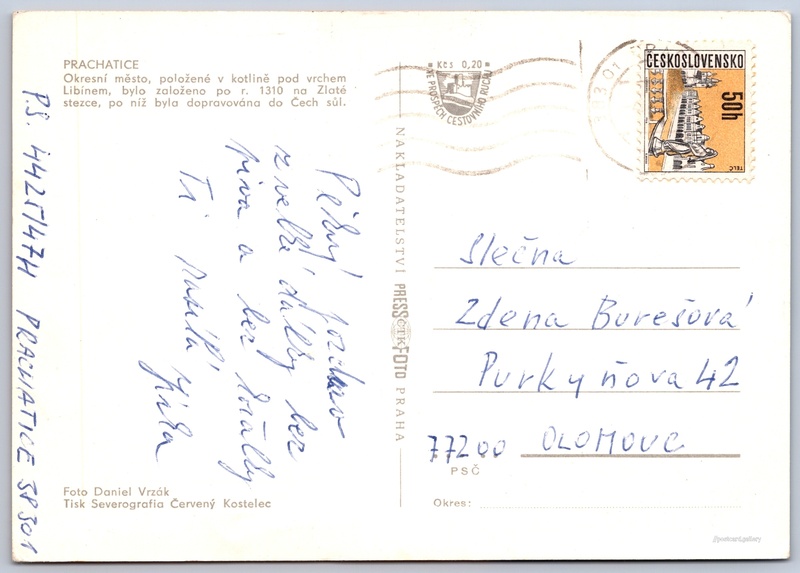 PRACHATICE
Okresní město, položené v kotlině pod vrchem
Libínem, bylo založeno po r. 1310 na Zlaté
stezce, po níž byla dopravována do Čech sůl.
Pěkný pozdrav
z velké dálky bez
piva a bez holky
Ti
Jirka
P.S. PRACHATICE 38301
Foto Daniel Vrzák
Tisk Severografia Červený Kostelec
NAKLADATELSTVÍ PRESSFOTO PRAHA
ČTK
Kčs 0,20
VE PROSPĚCH CESTOVNÍHO RUCHU
ČESKOSLOVENSKO
50h
TELČ
Slečna
Zdena Burešová
Purkyňova 42
77200 OLOMOUC
PSČ
Okres: